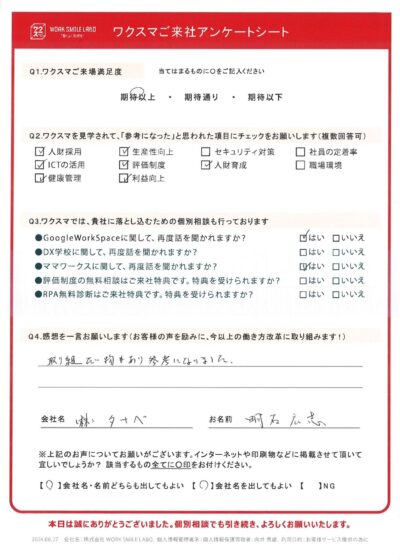 WORK SMILE LABO
ワクスマご来社アンケートシート
Q1.ワクスマご来場満足度 当てはまるものに○をご記入ください
期待以上 ・ 期待通り ・ 期待以下
Q2.ワクスマを見学されて、「参考になった」と思われた項目にチェックをお願いします(複数回答可)
☑人財採用 ☑生産性向上 □セキュリティ対策 □社員の定着率
☑ICTの活用 ☑評価制度 ☑人財育成 □職場環境
☑健康管理 ☑利益向上
Q3.ワクスマでは、貴社に落とし込むための個別相談も行っております
●GoogleWorkSpaceに関して、再度話を聞かれますか? ☑はい □いいえ
●DX学校に関して、再度話を聞かれますか? □はい □いいえ
●ママワークスに関して、再度話を聞かれますか? ☑はい □いいえ
●評価制度の無料相談はご来社特典です。特典を受けられますか? □はい □いいえ
●RPA無料診断はご来社特典です。特典を受けられますか? □はい □いいえ
Q4.感想を一言お願いします(お客様の声を励みに、今以上の働き方改革に取り組みます!)
取り組 参考になりました。
会社名 ㈱タナベ お名前 明石 広志
※上記のお声についてお願いがございます。インターネットや印刷物などに掲載させて頂いて
宜しいでしょうか? 該当するもの全てに○印をお付けください。
【○】会社名・名前どちらも出してもよい 【 】会社名を出してもよい 【 】NG
本日は誠にありがとうございました。個別相談でも引き続き、よろしくお願いいたします。
2024.06.27 会社名:株式会社 WORK SMILE LABO、個人情報管理者名:個人情報保護管理者: